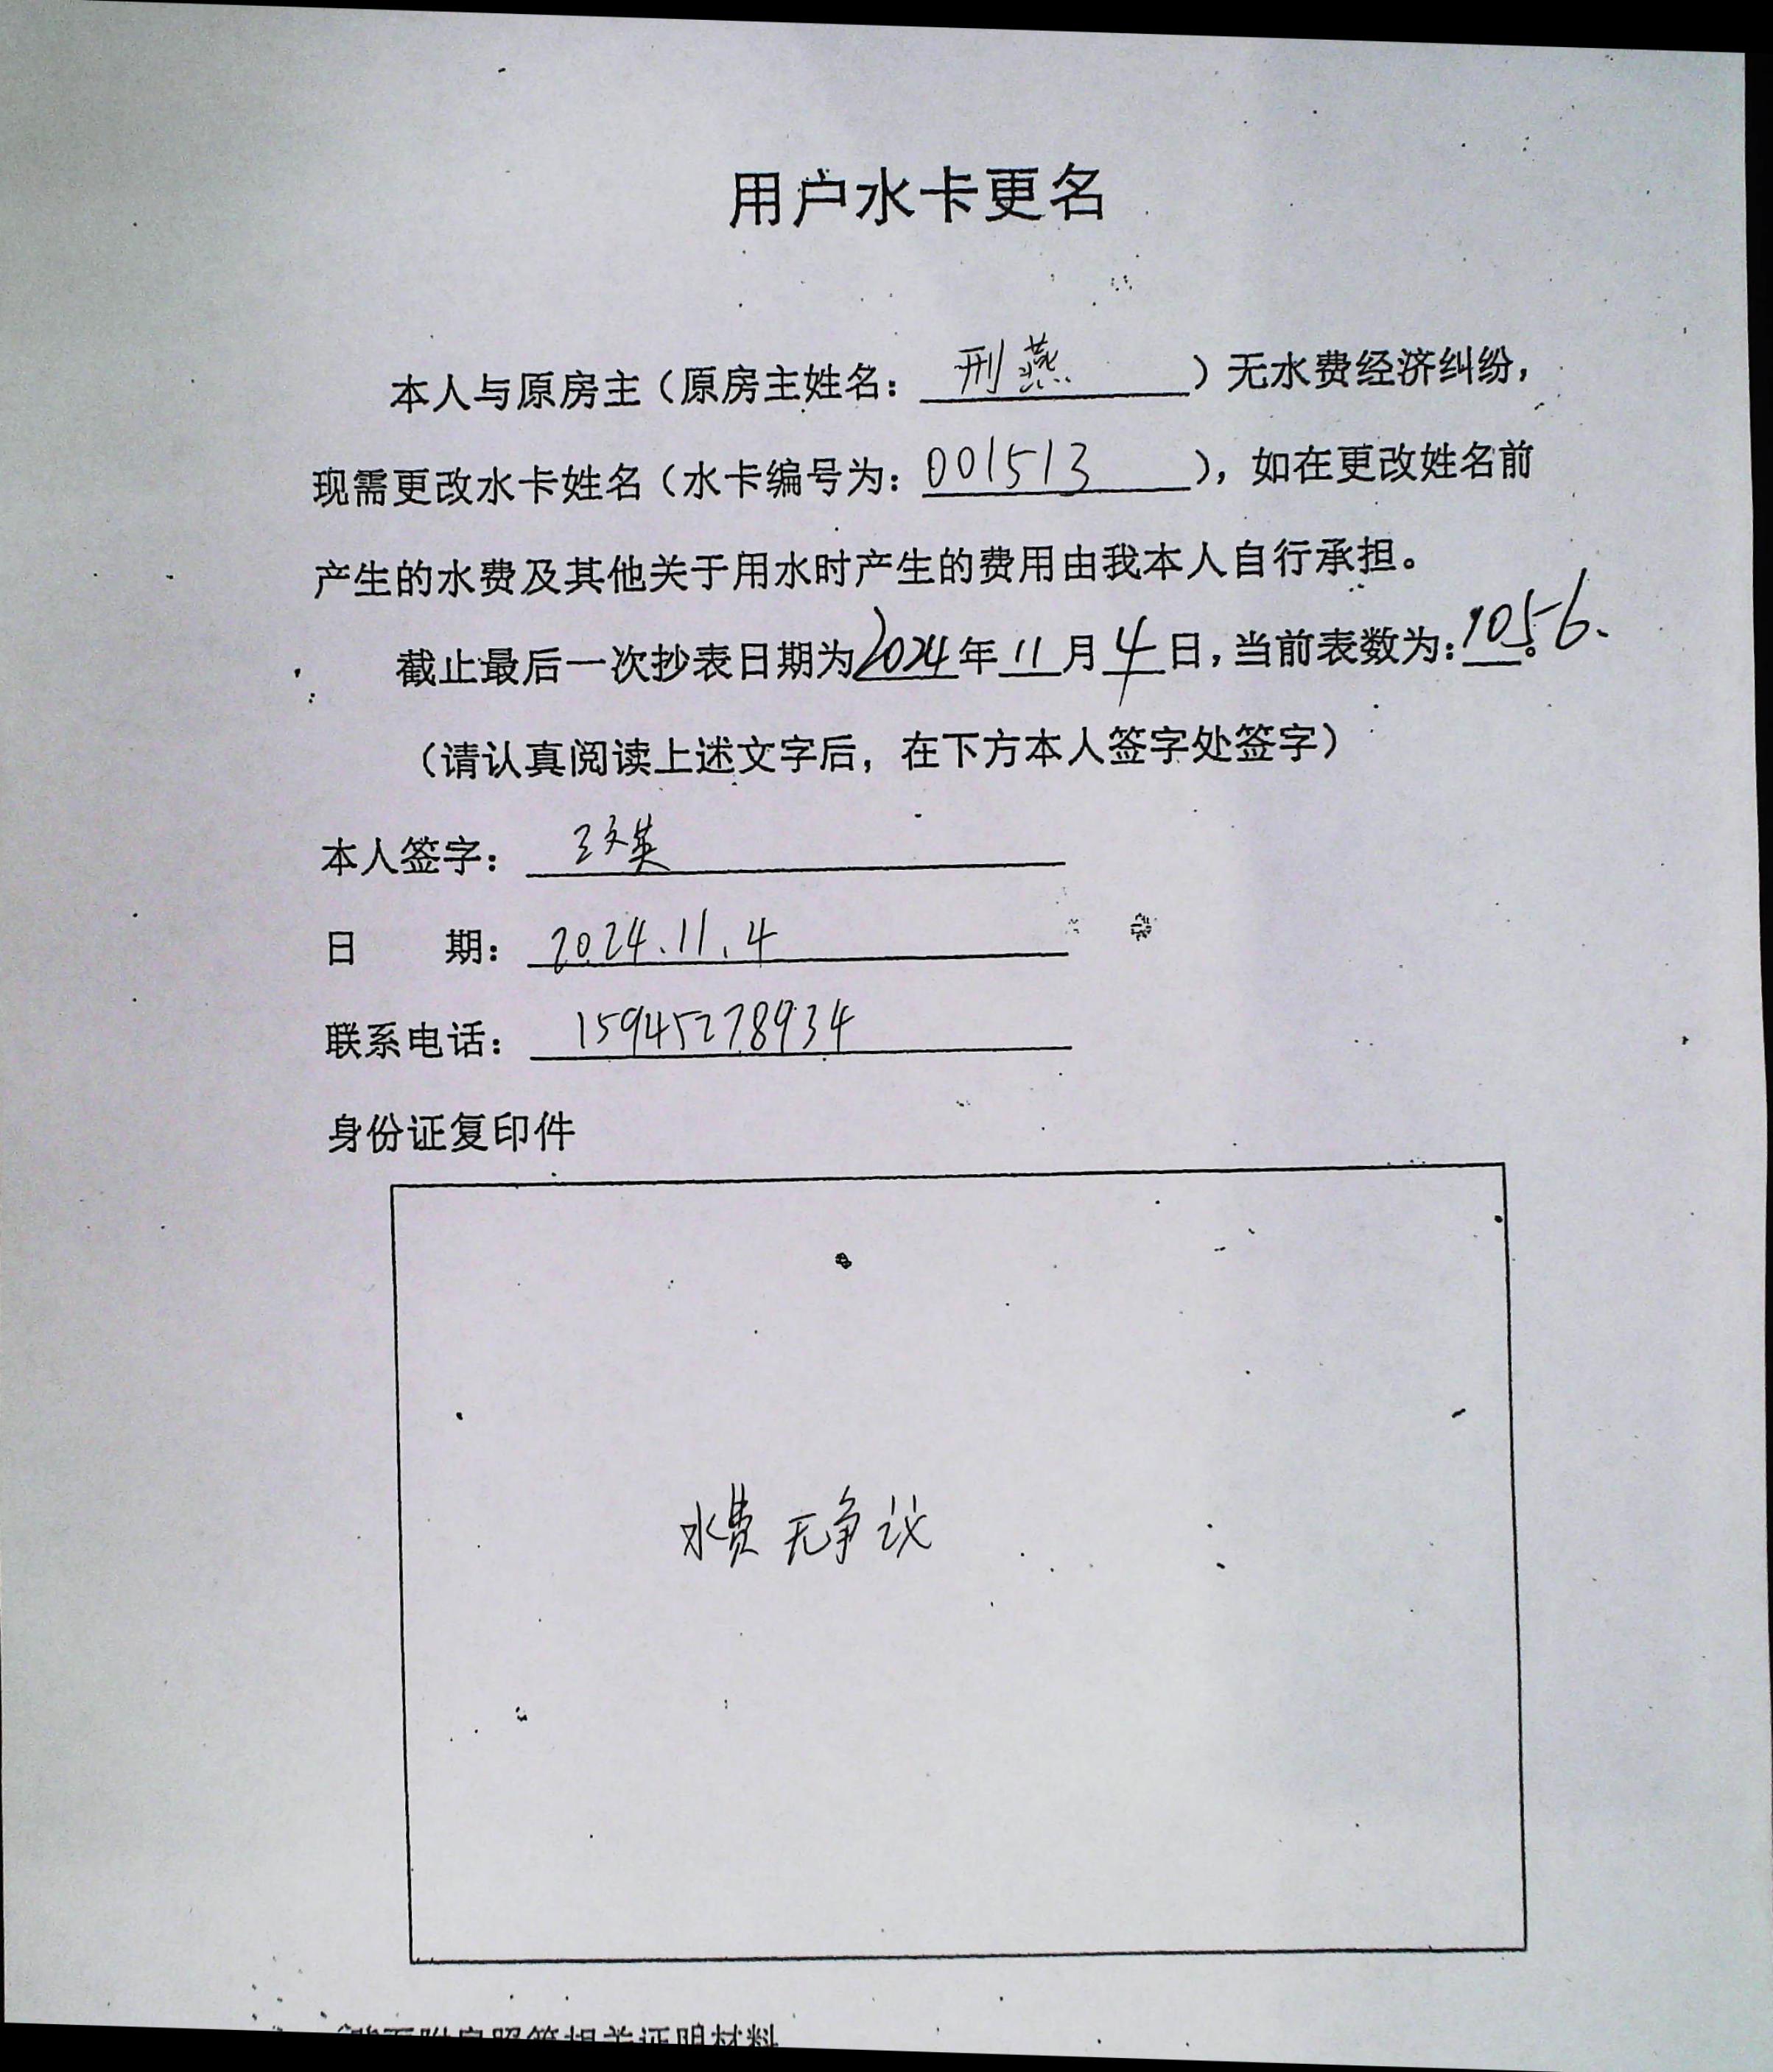 用户水卡更名
本人与原房主（原房主姓名：刑燕）无水费经济纠纷，
现需更改水卡姓名（水卡编号为：001513），如在更改姓名前
产生的水费及其他关于用水时产生的费用由我本人自行承担。
截止最后一次抄表日期为2024年11月4日，当前表数为：1056。
（请认真阅读上述文字后，在下方本人签字处签字）
本人签字：王文英
日　　期：2024.11.4
联系电话：15945278934
身份证复印件
水费无争议